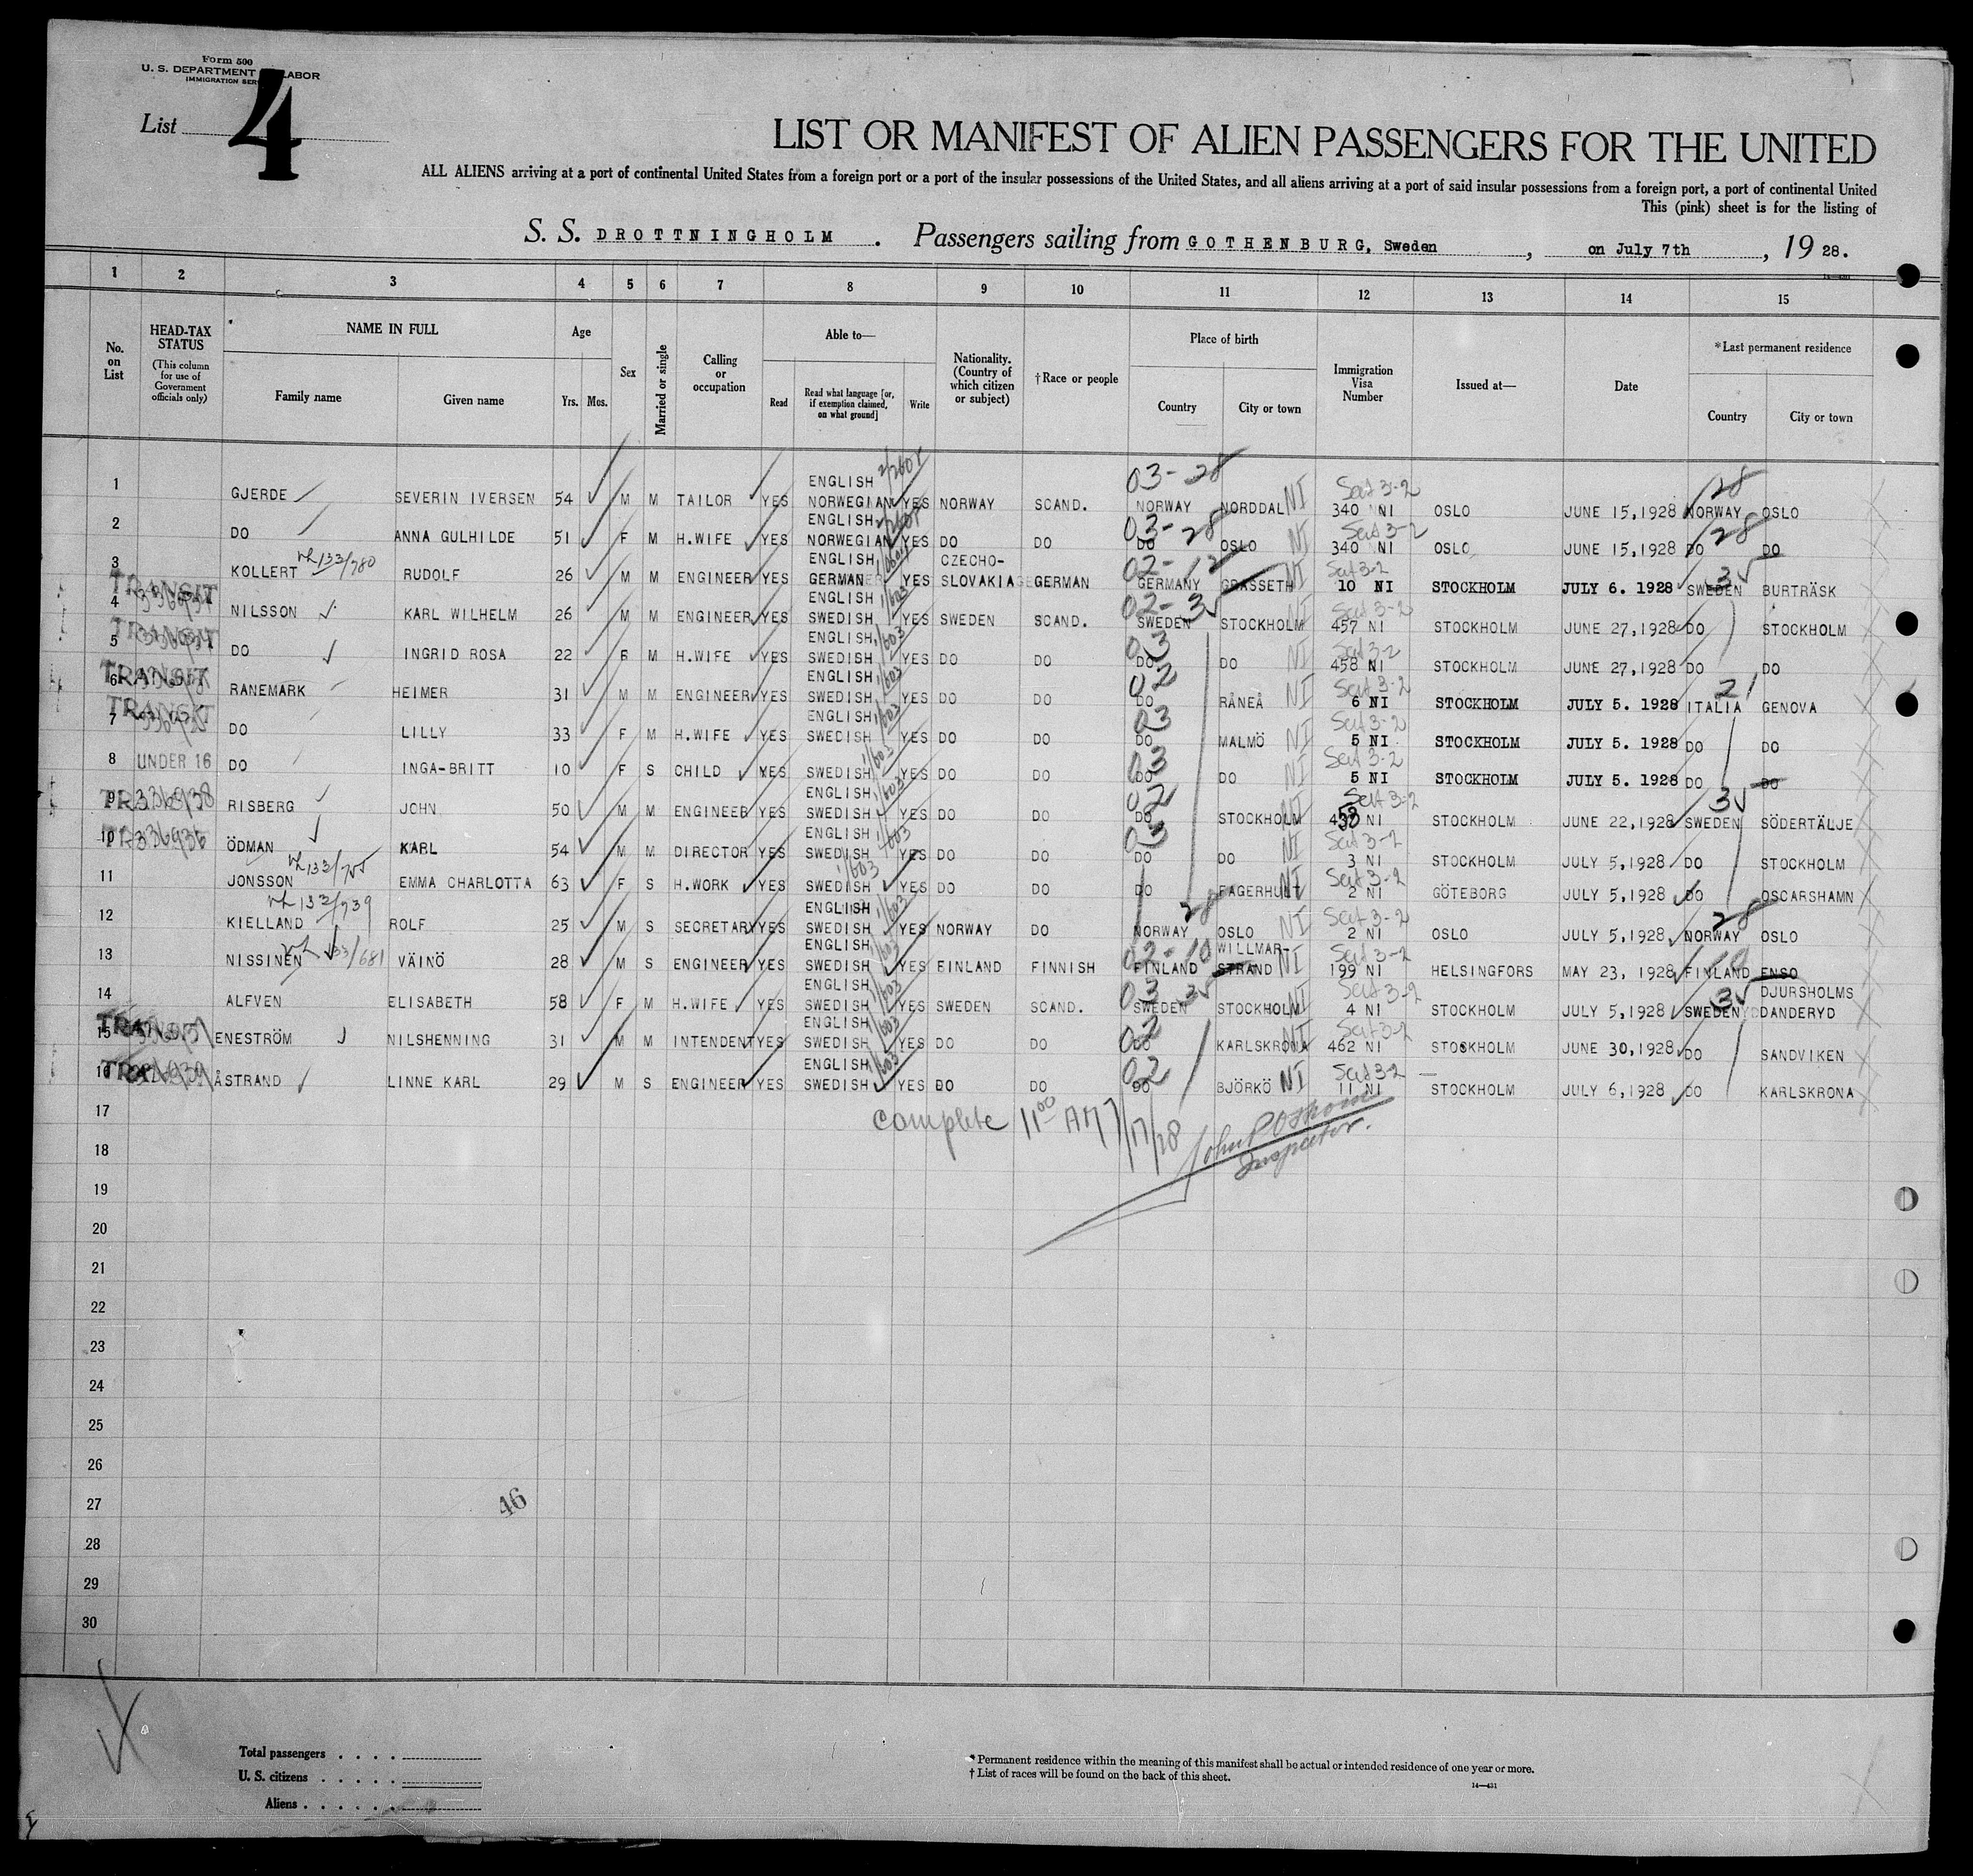 Form 500
U. S. DEPARTMENT LABOR
IMMIGRATION SER
List 4
LIST OR MANIFEST OF ALIEN PASSENGERS FOR THE UNITED
ALL ALIENS arriving at a port of continental United States from a foreign port or a port of the insular possessions of the United States, and all aliens arriving at a port of said insular possessions from a foreign port, a port of continental United
This (pink) sheet is for the listing of
S. S. DROTTNINGHOLM . Passengers sailing from GOTHENBURG, Sweden , on July 7th , 19 28.
1 2 3 4 5 6 7 8 9 10 11 12 13 14 15
No. on List
HEAD-TAX STATUS
(This column for use of Government officials only)
NAME IN FULL
Family name Given name
Age
Yrs. Mos.
Sex
Married or single
Calling or occupation
Able to—
Read
Read what language [or, if exemption claimed, on what ground]
Write
Nationality. (Country of which citizen or subject)
†Race or people
Place of birth
Country City or town
Immigration Visa Number
Issued at—
Date
*Last permanent residence
Country City or town
1 GJERDE SEVERIN IVERSEN 54 M M TAILOR YES ENGLISH NORWEGIAN YES NORWAY SCAND. 03-28 NORWAY NORDDAL NI 340 NI OSLO JUNE 15,1928 28 NORWAY OSLO
2 DO ANNA GULHILDE 51 F M H.WIFE YES ENGLISH NORWEGIAN YES DO DO 03-28 DO OSLO NI 340 NI OSLO JUNE 15,1928 28 DO DO
3 KOLLERT 133/780 RUDOLF 26 M M ENGINEER YES ENGLISH GERMAN YES CZECHO-SLOVAKIA GERMAN 02-12 GERMANY GRASSETH NI 10 NI STOCKHOLM JULY 6. 1928 SWEDEN BURTRÄSK
4 TRANSIT NILSSON KARL WILHELM 26 M M ENGINEER YES ENGLISH SWEDISH YES SWEDEN SCAND. 02- SWEDEN STOCKHOLM NI 457 NI STOCKHOLM JUNE 27,1928 DO STOCKHOLM
5 TRANSIT DO INGRID ROSA 22 F M H.WIFE YES ENGLISH SWEDISH YES DO DO 03 DO DO NI 458 NI STOCKHOLM JUNE 27,1928 DO DO
6 TRANSIT RANEMARK HEIMER 31 M M ENGINEER YES ENGLISH SWEDISH YES DO DO 02 DO RÅNEÅ NI 6 NI STOCKHOLM JULY 5. 1928 ITALIA GENOVA
7 TRANSIT DO LILLY 33 F M H.WIFE YES ENGLISH SWEDISH YES DO DO 03 DO MALMÖ NI 5 NI STOCKHOLM JULY 5. 1928 DO DO
8 UNDER 16 DO INGA-BRITT 10 F S CHILD YES SWEDISH YES DO DO 03 DO DO NI 5 NI STOCKHOLM JULY 5. 1928 DO DO
9 RISBERG JOHN 50 M M ENGINEER YES ENGLISH SWEDISH YES DO DO 02 DO STOCKHOLM NI NI STOCKHOLM JUNE 22,1928 SWEDEN SÖDERTÄLJE
10 ÖDMAN KARL 54 M M DIRECTOR YES ENGLISH SWEDISH YES DO DO 03 DO DO NI 3 NI STOCKHOLM JULY 5,1928 DO STOCKHOLM
11 JONSSON EMMA CHARLOTTA 63 F S H.WORK YES SWEDISH YES DO DO DO FAGERHULT NI 2 NI GÖTEBORG JULY 5,1928 DO OSCARSHAMN
12 KIELLAND ROLF 25 M S SECRETARY YES ENGLISH SWEDISH YES NORWAY DO 28 NORWAY OSLO NI 2 NI OSLO JULY 5,1928 28 NORWAY OSLO
13 NISSINEN VÄINÖ 28 M S ENGINEER YES ENGLISH SWEDISH YES FINLAND FINNISH 02-10 FINLAND WILLMAR-STRAND NI 199 NI HELSINGFORS MAY 23, 1928 FINLAND ENSO
14 ALFVEN ELISABETH 58 F M H.WIFE YES ENGLISH SWEDISH YES SWEDEN SCAND. 03 SWEDEN STOCKHOLM NI 4 NI STOCKHOLM JULY 5,1928 SWEDEN DJURSHOLMS DANDERYD
15 TRANSIT ENESTRÖM NILSHENNING 31 M M INTENDENT YES ENGLISH SWEDISH YES DO DO 02 DO KARLSKRONA NI 462 NI STOCKHOLM JUNE 30,1928 DO SANDVIKEN
16 ÅSTRAND LINNE KARL 29 M S ENGINEER YES ENGLISH SWEDISH YES DO DO 02 DO BJÖRKÖ NI 11 NI STOCKHOLM JULY 6,1928 DO KARLSKRONA
17
complete 11 00 AM 7/17/28
Inspector.
18
19
20
21
22
23
24
25
26
27
46
28
29
30
Total passengers . . . .
U. S. citizens . . . . .
Aliens . . . . . .
* Permanent residence within the meaning of this manifest shall be actual or intended residence of one year or more.
† List of races will be found on the back of this sheet.
14—431